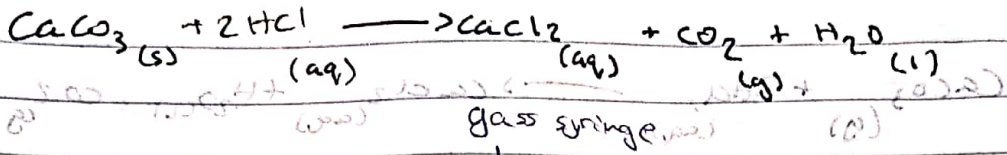 CaCO3(s) + 2HCl(aq) ⟶ CaCl2(aq) + CO2(g) + H2O(l)
gass syringe